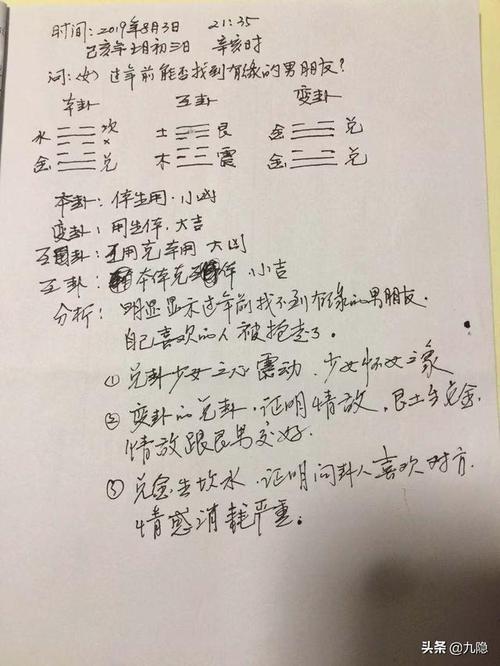 时间：2019年8月3日 21:35
己亥年七月初三日 辛亥时
问：(女) 过年前能否找到有缘的男朋友？
本卦 互卦 变卦
水 坎 土 艮 金 兑
金 兑 木 震 金 兑
本卦：体生用，小凶
变卦：用生体，大吉
互卦：互用克本用 大凶
互卦：本体克体 小吉
分析：明显显示过年前找不到有缘的男朋友．
自己喜欢的人被抢走了。
① 兑卦少女之心震动，少女怀女之象
② 变卦的兑卦，证明情敌，艮土生兑金，
情敌跟艮男交好．
③ 兑金生坎水，证明问卦人喜欢对方．
情感消耗严重。
头条 @九隐